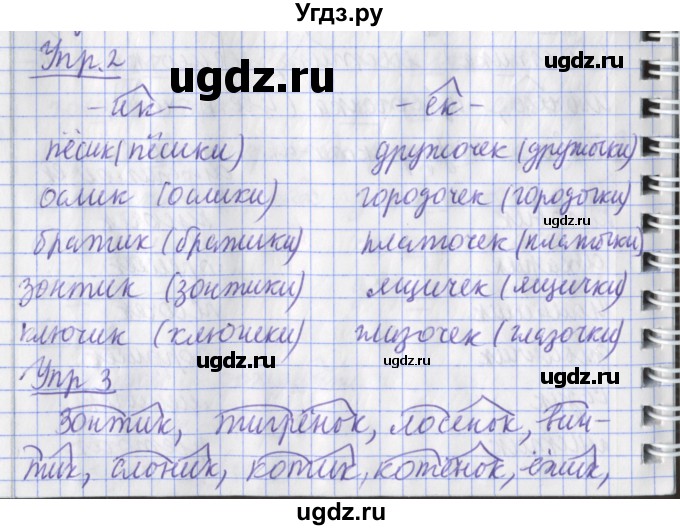 Угдз.ру
Упр. 2
ugdz.ru
ugdz.ru
- ик - - ек -
пёсик (пёсики) дружочек (дружочки)
ослик (ослики) городочек (городочки)
братик (братики) платочек (платочки)
ugdz.ru
ugdz.ru
зонтик (зонтики) ящичек (ящички)
ключик (ключики) глазочек (глазочки)
ugdz.ru
ugdz.ru
Упр 3
зонтик, тигрёнок, лосёнок, вин-
тик, слоник, котик, котёнок, ёжик,
ugdz.ru
ugdz.ru